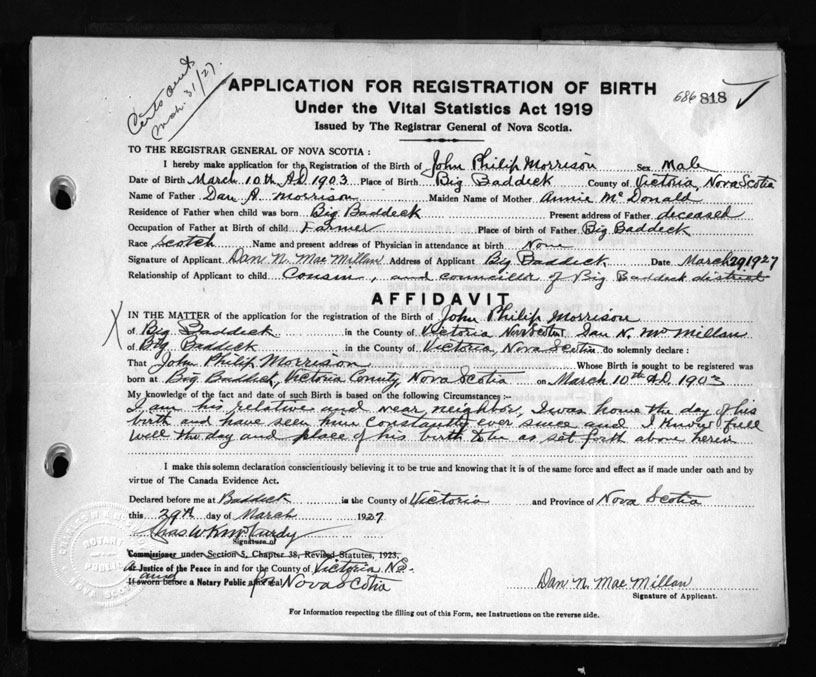 Certs sent
Mch. 31/27.
APPLICATION FOR REGISTRATION OF BIRTH
686 818
Under the Vital Statistics Act 1919
Issued by The Registrar General of Nova Scotia.
TO THE REGISTRAR GENERAL OF NOVA SCOTIA :
I hereby make application for the Registration of the Birth of John Philip Morrison Sex Male
Date of Birth March 10th A.D. 1903 Place of Birth Big Baddeck County of Victoria, Nova Scotia
Name of Father Dan A. Morrison Maiden Name of Mother Annie Mc Donald
Residence of Father when child was born Big Baddeck Present address of Father deceased
Occupation of Father at Birth of child Farmer Place of birth of Father Big Baddeck
Race Scotch Name and present address of Physician in attendance at birth None
Signature of Applicant Dan N. Mac Millan Address of Applicant Big Baddeck Date March 29, 1927
Relationship of Applicant to child Cousin, and councillor of Big Baddeck district
AFFIDAVIT
IN THE MATTER of the application for the registration of the Birth of John Philip Morrison
of Big Baddeck in the County of Victoria Nova Scotia Dan N. Mc Millan
of Big Baddeck in the County of Victoria, Nova Scotia do solemnly declare :
That John Philip Morrison Whose Birth is sought to be registered was
born at Big Baddeck, Victoria County, Nova Scotia on March 10th A.D. 1903
My knowledge of the fact and date of such Birth is based on the following Circumstances :-
I am his relative and near neighbor, I was home the day of his
birth and have seen him constantly ever since and I know full
well the day and place of his birth to be as set forth above herein
I make this solemn declaration conscientiously believing it to be true and knowing that it is of the same force and effect as if made under oath and by
virtue of The Canada Evidence Act.
Declared before me at Baddeck in the County of Victoria and Province of Nova Scotia
this 29th day of March 1927
Chas W K McCurdy
Signature of
Commissioner under Section 5, Chapter 38, Revised Statutes, 1923.
As Justice of the Peace in and for the County of Victoria N.S.
If sworn before a Notary Public Nova Scotia
Dan N. Mac Millan
Signature of Applicant.
For Information respecting the filling out of this Form, see Instructions on the reverse side.
NOTARY
PUBLIC
NOVA SCOTIA